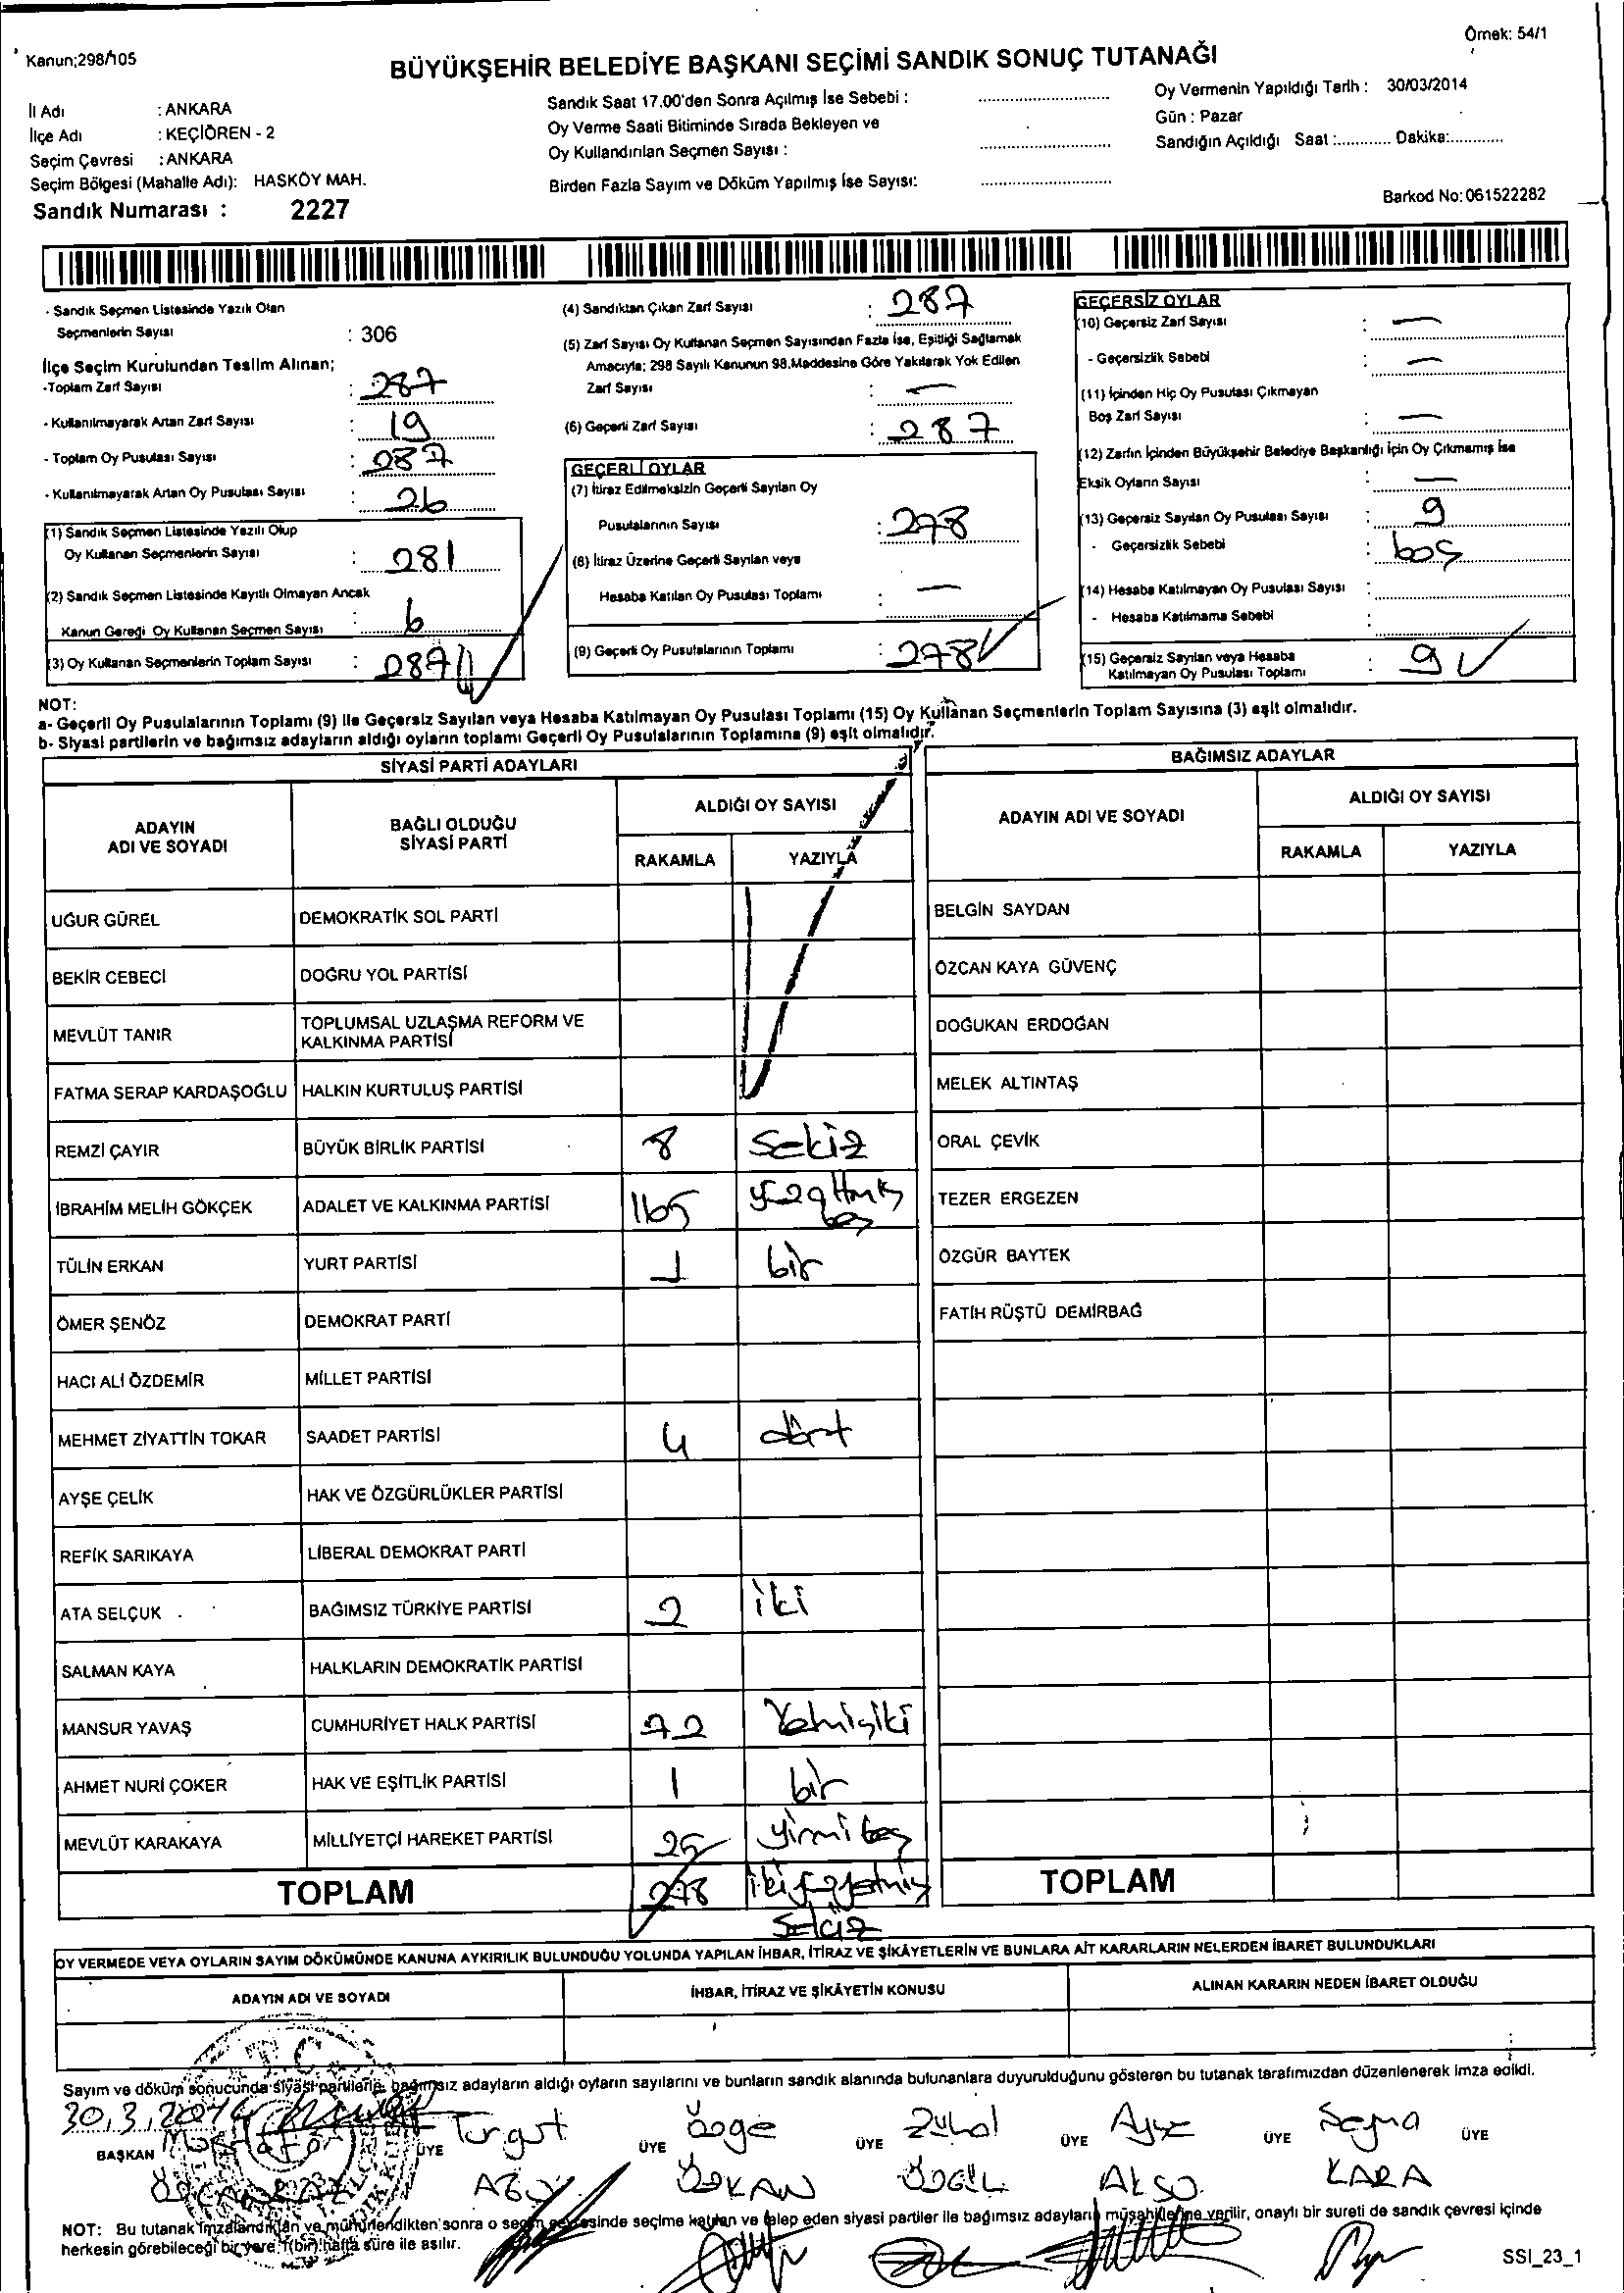 Kanun;298/105
Örnek: 54/1
BÜYÜKŞEHİR BELEDİYE BAŞKANI SEÇİMİ SANDIK SONUÇ TUTANAĞI
İl Adı : ANKARA
İlçe Adı : KEÇİÖREN - 2
Seçim Çevresi : ANKARA
Seçim Bölgesi (Mahalle Adı): HASKÖY MAH.
Sandık Numarası : 2227
Sandık Saat 17.00'den Sonra Açılmış İse Sebebi :
Oy Verme Saati Bitiminde Sırada Bekleyen ve
Oy Kullandırılan Seçmen Sayısı :
Birden Fazla Sayım ve Döküm Yapılmış İse Sayısı:
Oy Vermenin Yapıldığı Tarih : 30/03/2014
Gün : Pazar
Sandığın Açıldığı Saat :............ Dakika:............
Barkod No: 061522282
- Sandık Seçmen Listesinde Yazılı Olan
Seçmenlerin Sayısı : 306
İlçe Seçim Kurulundan Teslim Alınan;
-Toplam Zarf Sayısı : 287
- Kullanılmayarak Artan Zarf Sayısı : 19
- Toplam Oy Pusulası Sayısı : 287
- Kullanılmayarak Artan Oy Pusulası Sayısı : 26
(1) Sandık Seçmen Listesinde Yazılı Olup
Oy Kullanan Seçmenlerin Sayısı : 281
(2) Sandık Seçmen Listesinde Kayıtlı Olmayan Ancak
Kanun Gereği Oy Kullanan Seçmen Sayısı : 6
(3) Oy Kullanan Seçmenlerin Toplam Sayısı : 287
(4) Sandıktan Çıkan Zarf Sayısı : 287
(5) Zarf Sayısı Oy Kullanan Seçmen Sayısından Fazla İse, Eşitliği Sağlamak
Amacıyla; 298 Sayılı Kanunun 98.Maddesine Göre Yakılarak Yok Edilen
Zarf Sayısı : —
(6) Geçerli Zarf Sayısı : 287
GEÇERLİ OYLAR
(7) İtiraz Edilmeksizin Geçerli Sayılan Oy
Pusulalarının Sayısı : 278
(8) İtiraz Üzerine Geçerli Sayılan veya
Hesaba Katılan Oy Pusulası Toplamı : —
(9) Geçerli Oy Pusulalarının Toplamı : 278
GEÇERSİZ OYLAR
(10) Geçersiz Zarf Sayısı : —
- Geçersizlik Sebebi : —
(11) İçinden Hiç Oy Pusulası Çıkmayan
Boş Zarf Sayısı : —
(12) Zarfın İçinden Büyükşehir Belediye Başkanlığı İçin Oy Çıkmamış İse
Eksik Oyların Sayısı : —
(13) Geçersiz Sayılan Oy Pusulası Sayısı : 9
- Geçersizlik Sebebi : boş
(14) Hesaba Katılmayan Oy Pusulası Sayısı :
- Hesaba Katılmama Sebebi :
(15) Geçersiz Sayılan veya Hesaba
Katılmayan Oy Pusulası Toplamı : 9
NOT:
a- Geçerli Oy Pusulalarının Toplamı (9) ile Geçersiz Sayılan veya Hesaba Katılmayan Oy Pusulası Toplamı (15) Oy Kullanan Seçmenlerin Toplam Sayısına (3) eşit olmalıdır.
b- Siyasi partilerin ve bağımsız adayların aldığı oyların toplamı Geçerli Oy Pusulalarının Toplamına (9) eşit olmalıdır.
SİYASİ PARTİ ADAYLARI
ADAYIN ADI VE SOYADI
BAĞLI OLDUĞU SİYASİ PARTİ
ALDIĞI OY SAYISI
RAKAMLA YAZIYLA
UĞUR GÜREL DEMOKRATİK SOL PARTİ
BEKİR CEBECİ DOĞRU YOL PARTİSİ
MEVLÜT TANIR TOPLUMSAL UZLAŞMA REFORM VE KALKINMA PARTİSİ
FATMA SERAP KARDAŞOĞLU HALKIN KURTULUŞ PARTİSİ
REMZİ ÇAYIR BÜYÜK BİRLİK PARTİSİ 8 Sekiz
İBRAHİM MELİH GÖKÇEK ADALET VE KALKINMA PARTİSİ 165 yüzaltmış beş
TÜLİN ERKAN YURT PARTİSİ 1 bir
ÖMER ŞENÖZ DEMOKRAT PARTİ
HACI ALİ ÖZDEMİR MİLLET PARTİSİ
MEHMET ZİYATTİN TOKAR SAADET PARTİSİ 4 dört
AYŞE ÇELİK HAK VE ÖZGÜRLÜKLER PARTİSİ
REFİK SARIKAYA LİBERAL DEMOKRAT PARTİ
ATA SELÇUK BAĞIMSIZ TÜRKİYE PARTİSİ 2 iki
SALMAN KAYA HALKLARIN DEMOKRATİK PARTİSİ
MANSUR YAVAŞ CUMHURİYET HALK PARTİSİ 72 Yetmişiki
AHMET NURİ ÇOKER HAK VE EŞİTLİK PARTİSİ 1 bir
MEVLÜT KARAKAYA MİLLİYETÇİ HAREKET PARTİSİ 25 yirmi beş
TOPLAM 278 ikiyüzyetmiş Sekiz
BAĞIMSIZ ADAYLAR
ADAYIN ADI VE SOYADI
ALDIĞI OY SAYISI
RAKAMLA YAZIYLA
BELGİN SAYDAN
ÖZCAN KAYA GÜVENÇ
DOĞUKAN ERDOĞAN
MELEK ALTINTAŞ
ORAL ÇEVİK
TEZER ERGEZEN
ÖZGÜR BAYTEK
FATİH RÜŞTÜ DEMİRBAĞ
TOPLAM
OY VERMEDE VEYA OYLARIN SAYIM DÖKÜMÜNDE KANUNA AYKIRILIK BULUNDUĞU YOLUNDA YAPILAN İHBAR, İTİRAZ VE ŞİKÂYETLERİN VE BUNLARA AİT KARARLARIN NELERDEN İBARET BULUNDUKLARI
ADAYIN ADI VE SOYADI İHBAR, İTİRAZ VE ŞİKÂYETİN KONUSU ALINAN KARARIN NEDEN İBARET OLDUĞU
Sayım ve döküm sonucunda siyasi partilerle, bağımsız adayların aldığı oyların sayılarını ve bunların sandık alanında bulunanlara duyurulduğunu gösteren bu tutanak tarafımızdan düzenlenerek imza edildi.
30.3.2014
BAŞKAN ÜYE Turgut ÜYE Özge ÜYE Zühal ÜYE Ayşe ÜYE Seyma ÜYE
ÖZKAN AKSO KARA
NOT: Bu tutanak imzalandıktan ve mühürlendikten sonra o seçim çevresinde seçime katılan ve talep eden siyasi partiler ile bağımsız adayların müşahitlerine verilir, onaylı bir sureti de sandık çevresi içinde
herkesin görebileceği bir yere 1(bir) hafta süre ile asılır.
SSI_23_1